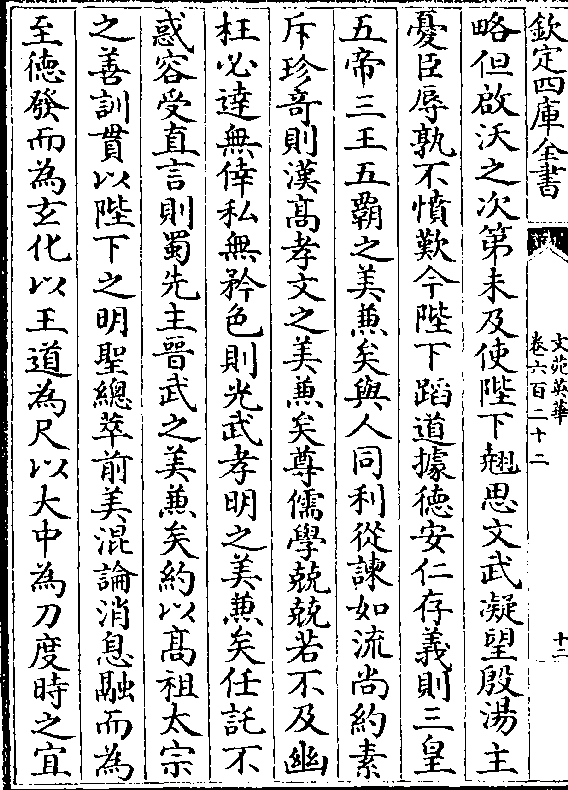 欽定四庫全書
文苑英華
卷六百二十二
十二
略但啟沃之次第未及使陛下翹思文武凝望殷湯主
憂臣辱孰不憤歎今陛下蹈道據德安仁存義則三皇
五帝三王五霸之美兼矣與人同利從諫如流尚約素
斥珍竒則漢髙孝文之美兼矣尊儒學兢兢若不及幽
枉必達無倖私無矜色則光武孝明之美兼矣任託不
惑容受直言則蜀先主晉武之美兼矣約以髙祖太宗
之善訓貫以陛下之明聖總萃前美混論消息融而為
至徳發而為玄化以王道為尺以大中為刀度時之宜